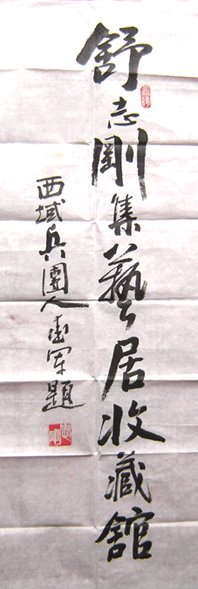 舒志剛集藝居收藏舘
西域兵團人 軍題